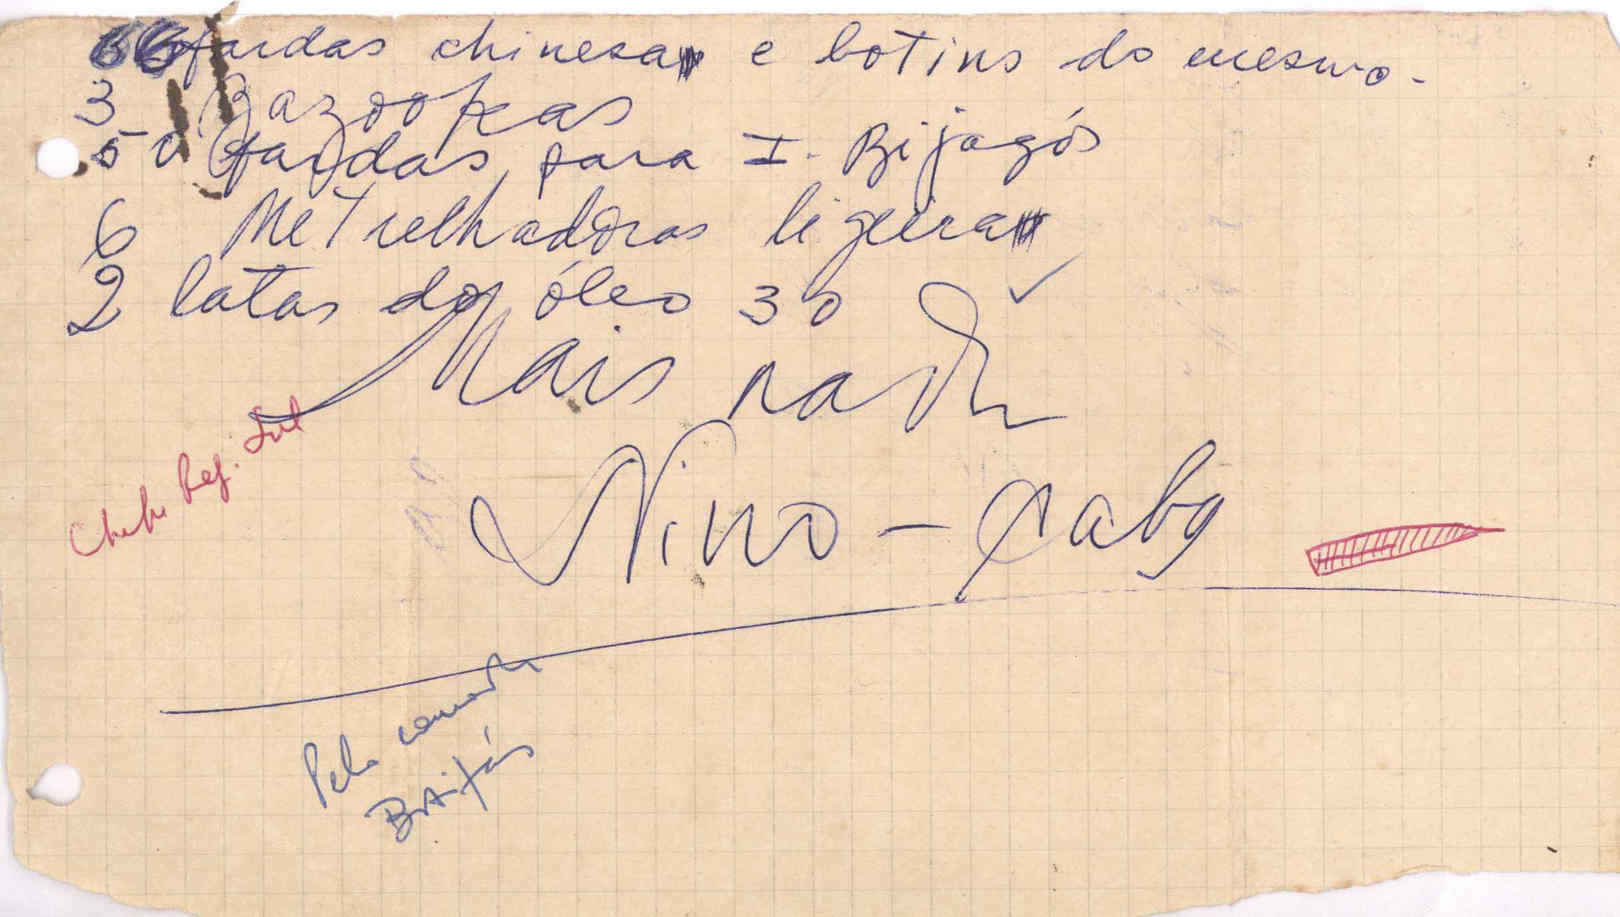 66 fardas chinesas e botins do mesmo.
3 Bazookas
50 fardas para I. Bijagós
6 Metrelhadoras ligeiras
2 latas do óleo 30 ✓
Mais nada
Chefe Reg. Sul
Nino - Caby
Pelo camarada